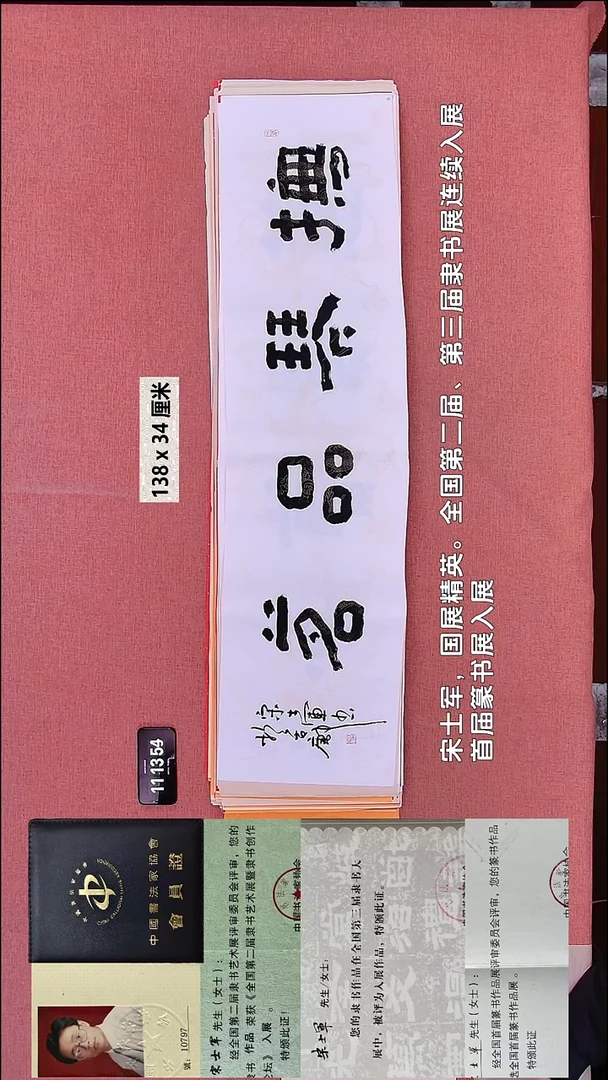 138 x 34 厘米
撫琴品茗
宋士軍
11:13:54
宋士军，国展精英。全国第二届、第三届隶书展连续入展
首届篆书展入展
中國書法家協會
會員證
號: 10797
宋士军 先生（女士）：
经全国第二届隶书艺术展评审委员会评审，您的
书 作品 荣获《全国第二届隶书艺术展暨隶书创作
坛》入展 。
特颁此证！
宋士军 先生/女士：
您的隶书作品在全国第三届隶书大
展中，被评为入展作品，特颁此证。
士军 先生（女士）：
经全国首届篆书作品展评审委员会评审，您的篆书作品
选全国首届篆书作品展 。
特颁此证